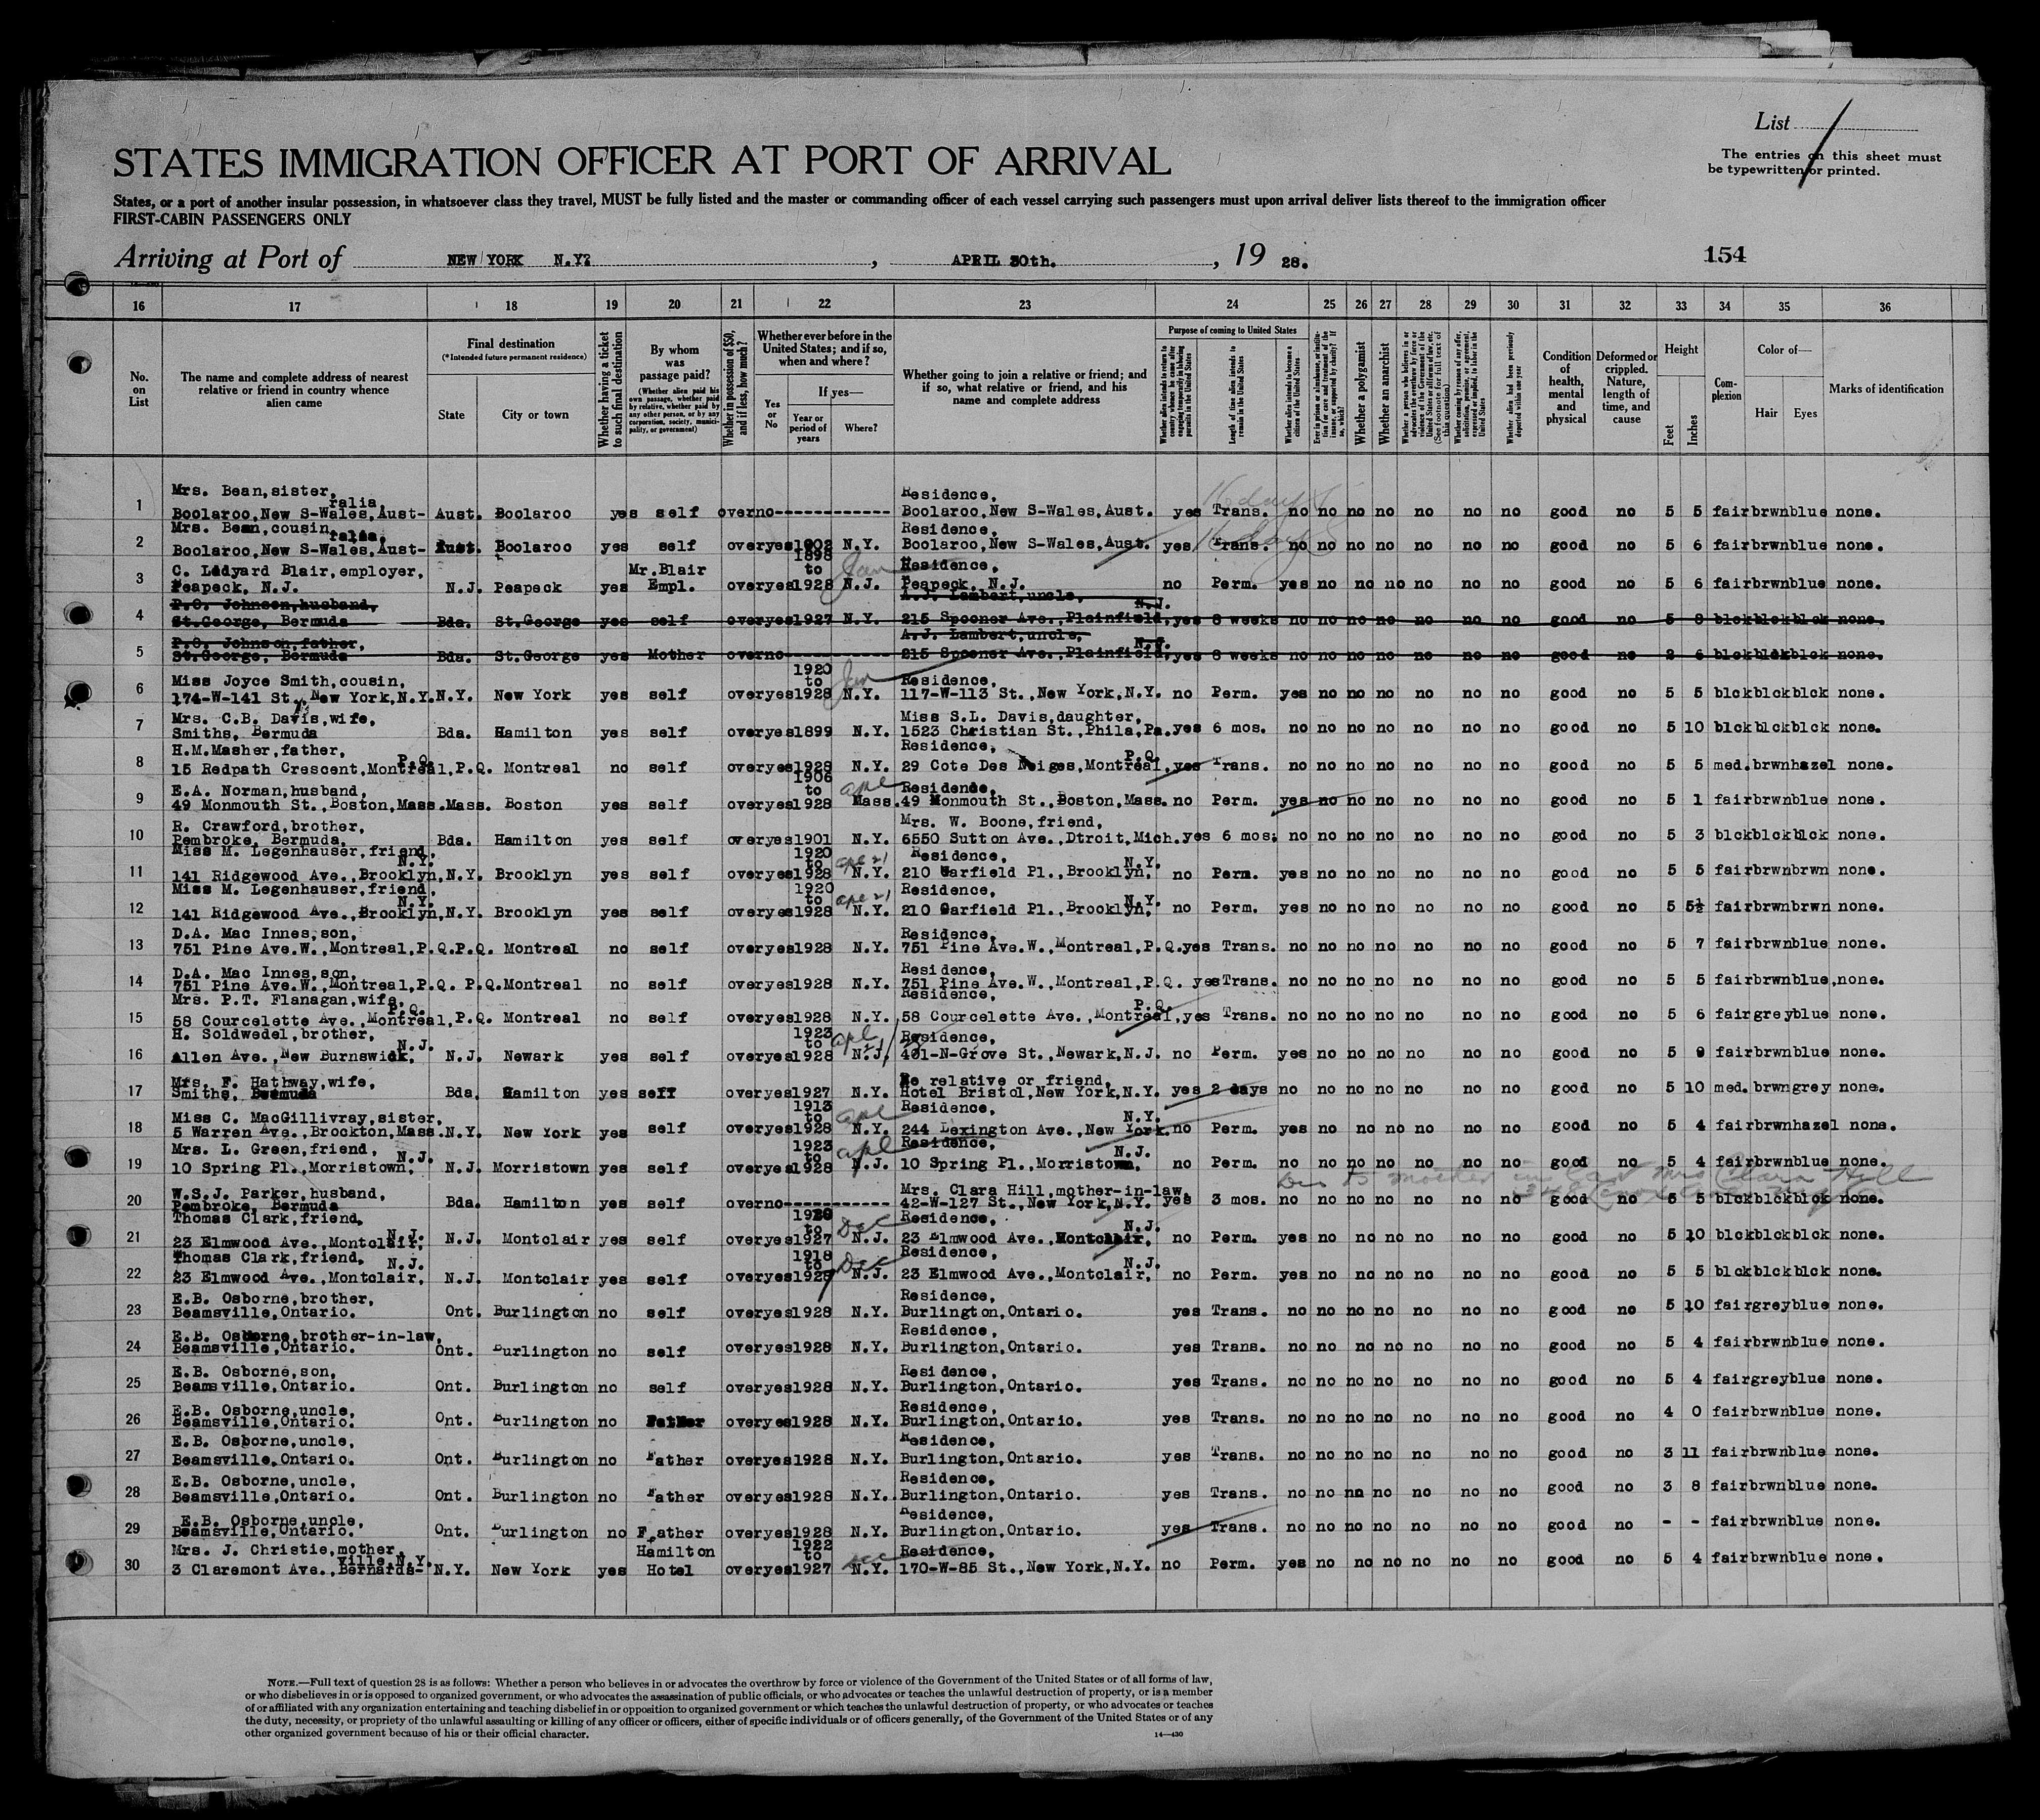 List
The entries on this sheet must
be typewritten or printed.
STATES IMMIGRATION OFFICER AT PORT OF ARRIVAL
States, or a port of another insular possession, in whatsoever class they travel, MUST be fully listed and the master or commanding officer of each vessel carrying such passengers must upon arrival deliver lists thereof to the immigration officer
FIRST-CABIN PASSENGERS ONLY
Arriving at Port of NEW YORK N.Y? , APRIL 30th. , 19 28. 154
16 17 18 19 20 21 22 23 24 25 26 27 28 29 30 31 32 33 34 35 36
No. on List
The name and complete address of nearest relative or friend in country whence alien came
Final destination
(*Intended future permanent residence)
State City or town
Whether having a ticket to such final destination
By whom was passage paid?
(Whether alien paid his own passage, whether paid by relative, whether paid by any other person, or by any corporation, society, municipality, or government)
Whether in possession of $50, and if less, how much?
Whether ever before in the United States; and if so, when and where?
Yes or No
If yes—
Year or period of years Where?
Whether going to join a relative or friend; and if so, what relative or friend, and his name and complete address
Purpose of coming to United States
Whether alien intends to return to country whence he came after engaging temporarily in laboring pursuits in the United States
Length of time alien intends to remain in the United States
Whether alien intends to become a citizen of the United States
Whether a polygamist
Whether an anarchist
Whether alien had been previously deported within one year
Condition of health, mental and physical
Deformed or crippled. Nature, length of time, and cause
Height
Feet Inches
Complexion
Color of—
Hair Eyes
Marks of identification
16 days
1 Mrs. Bean,sister, ralia, Boolaroo,New S-Wales,Aust- Aust. Boolaroo yes self over no------------ Residence, Boolaroo,New S-Wales,Aust. yes Trans. no no no no no no no good no 5 5 fair brwn blue none.
16 days
2 Mrs. Bean,cousin ralia, Boolaroo,New S-Wales,Aust- Aust. Boolaroo yes self over yes 1902 N.Y. Residence, Boolaroo,New S-Wales,Aust. yes Trans. no no no no no no no good no 5 6 fair brwn blue none.
3 C. Ledyard Blair,employer, Peapeck, N.J. N.J. Peapeck yes Mr.Blair Empl. over yes 1898 to 1928 Jan N.J. Residence, Peapeck, N.J. no Perm. yes no no no no no no good no 5 6 fair brwn blue none.
4 P.O. Johnson,husband, St.George, Bermuda Bda. St.George yes self over yes 1927 N.Y. A.J. Lambert,uncle, N.J. 215 Spooner Ave.,Plainfield, yes 8 weeks no no no no no no no good no 5 8 blck blck blck none.
5 P.O. Johnson,father, St.George, Bermuda Bda. St.George yes Mother over no------------ A.J. Lambert,uncle, N.J. 215 Spooner Ave.,Plainfield, yes 8 weeks no no no no no no no good no 2 6 blck blck blck none.
6 Miss Joyce Smith,cousin, 174-W-141 St.,New York,N.Y. N.Y. New York yes self over yes 1920 to 1928 Jan N.Y. Residence, 117-W-113 St.,New York,N.Y. no Perm. yes no no no no no no good no 5 5 blck blck blck none.
7 Mrs. C.B. Davis,wife, Smiths, Bermuda Bda. Hamilton yes self over yes 1899 N.Y. Miss S.L. Davis,daughter, 1523 Christian St.,Phila,Pa. yes 6 mos. no no no no no no no good no 5 10 blck blck blck none.
8 H.M.Masher,father, P.Q. 15 Redpath Crescent,Montreal, P.Q. Montreal no self over yes 1928 N.Y. Residence, P.Q. 29 Cote Des Neiges,Montreal, yes Trans. no no no no no no no good no 5 5 med. brwn hazel none.
9 E.A. Norman,husband, 49 Monmouth St.,Boston,Mass. Mass. Boston yes self over yes 1906 to 1928 apl Mass. Residence, 49 Monmouth St.,Boston,Mass. no Perm. yes no no no no no no good no 5 1 fair brwn blue none.
10 R. Crawford,brother, Pembroke, Bermuda, Bda. Hamilton yes self over yes 1901 N.Y. Mrs. W. Boone,friend, 6550 Sutton Ave.,Dtroit,Mich. yes 6 mos. no no no no no no no good no 5 3 blck blck blck none.
11 Miss M. Legenhauser,friend, N.Y. 141 Ridgewood Ave.,Brooklyn, N.Y. Brooklyn yes self over yes 1920 to 1928 apl 21 N.Y. Residence, N.Y. 210 Garfield Pl.,Brooklyn, no Perm. yes no no no no no no good no 5 5 fair brwn brwn none.
12 Miss M. Legenhauser,friend, N.Y. 141 Ridgewood Ave.,Brooklyn, N.Y. Brooklyn yes self over yes 1920 to 1928 apl 21 N.Y. Residence, N.Y. 210 Garfield Pl.,Brooklyn, no Perm. yes no no no no no no good no 5 5½ fair brwn brwn none.
13 D.A. Mac Innes,son, 751 Pine Ave.W.,Montreal,P.Q. P.Q. Montreal no self over yes 1928 N.Y. Residence, 751 Pine Ave.W.,Montreal,P.Q. yes Trans. no no no no no no no good no 5 7 fair brwn blue none.
14 D.A. Mac Innes,son, 751 Pine Ave.W.,Montreal,P.Q. P.Q. Montreal no self over yes 1928 N.Y. Residence, 751 Pine Ave.W.,Montreal,P.Q. yes Trans. no no no no no no no good no 5 5 fair brwn blue, none.
15 Mrs. P.T. Flanagan,wife, P.Q. 58 Courcelette Ave.,Montreal, P.Q. Montreal no self over yes 1928 N.Y. Residence, P.Q. 58 Courcelette Ave.,Montreal, yes Trans. no no no no no no no good no 5 6 fair grey blue none.
16 H. Soldwedel,brother, N.J. Allen Ave.,New Burnswick, N.J. Newark yes self over yes 1923 to 1928 apl N.J. Residence, 401-N-Grove St.,Newark,N.J. no Perm. yes no no no no no no good no 5 9 fair brwn blue none.
17 Mrs. F. Hathway,wife, Smiths, Bermuda Bda. Hamilton yes self over yes 1927 N.Y. No relative or friend, Hotel Bristol,New York,N.Y. yes 2 days no no no no no no no good no 5 10 med. brwn grey none.
18 Miss C. MacGillivray,sister, 5 Warren Ave.,Brockton,Mass. N.Y. New York yes self over yes 1913 to 1928 apl N.Y. Residence, N.Y. 244 Lexington Ave.,New York. no Perm. yes no no no no no no good no 5 4 fair brwn hazel none.
19 Mrs. L. Green,friend, N.J. 10 Spring Pl.,Morristown, N.J. Morristown yes self over yes 1923 to 1928 apl N.J. Residence, N.J. 10 Spring Pl.,Morristown, no Perm. no no no no no no no good no 5 4 fair brwn blue none.
20 W.S.J. Parker,husband, Pembroke, Bermuda Bda. Hamilton yes self over no------------ Mrs. Clara Hill,mother-in-law, 42-W-127 St.,New York,N.Y. yes 3 mos. no no no no no no no good no 5 5 blck blck blck none.
Mrs Clara Hill
21 Thomas Clark,friend, N.J. 23 Elmwood Ave.,Montclair, N.J. Montclair yes self over yes to 1927 Dec N.J. Residence, N.J. 23 Elmwood Ave.,Montclair, no Perm. yes no no no no no no good no 5 10 blck blck blck none.
22 Thomas Clark,friend, N.J. 23 Elmwood Ave.,Montclair, N.J. Montclair yes self over yes 1918 to Dec N.J. Residence, N.J. 23 Elmwood Ave.,Montclair, no Perm. yes no no no no no no good no 5 5 blck blck blck none.
23 E.B. Osborne,brother, Beamsville,Ontario. Ont. Burlington no self over yes 1928 N.Y. Residence, Burlington,Ontario. yes Trans. no no no no no no no good no 5 10 fair grey blue none.
24 E.B. Osborne,brother-in-law, Beamsville,Ontario. Ont. Burlington no self over yes 1928 N.Y. Residence, Burlington,Ontario. yes Trans. no no no no no no no good no 5 4 fair brwn blue none.
25 E.B. Osborne,son, Beamsville,Ontario. Ont. Burlington no self over yes 1928 N.Y. Residence, Burlington,Ontario. yes Trans. no no no no no no no good no 5 4 fair grey blue none.
26 E.B. Osborne,uncle, Beamsville,Ontario. Ont. Burlington no Father over yes 1928 N.Y. Residence, Burlington,Ontario. yes Trans. no no no no no no no good no 4 0 fair brwn blue none.
27 E.B. Osborne,uncle, Beamsville,Ontario. Ont. Burlington no Father over yes 1928 N.Y. Residence, Burlington,Ontario. yes Trans. no no no no no no no good no 3 11 fair brwn blue none.
28 E.B. Osborne,uncle, Beamsville,Ontario. Ont. Burlington no Father over yes 1928 N.Y. Residence, Burlington,Ontario. yes Trans. no no no no no no no good no 3 8 fair brwn blue none.
29 E.B. Osborne,uncle, Beamsville,Ontario. Ont. Burlington no Father over yes 1928 N.Y. Residence, Burlington,Ontario. yes Trans. no no no no no no no good no - - fair brwn blue none.
30 Mrs. J. Christie,mother, ville,N.Y. 3 Claremont Ave.,Bernards- N.Y. New York yes Hamilton Hotel over yes 1922 to 1927 dec N.Y. Residence, 170-W-85 St.,New York,N.Y. no Perm. yes no no no no no no good no 5 4 fair brwn blue none.
NOTE.—Full text of question 28 is as follows: Whether a person who believes in or advocates the overthrow by force or violence of the Government of the United States or of all forms of law,
or who disbelieves in or is opposed to organized government, or who advocates the assassination of public officials, or who advocates or teaches the unlawful destruction of property, or is a member
of or affiliated with any organization entertaining and teaching disbelief in or opposition to organized government or which teaches the unlawful destruction of property, or who advocates or teaches
the duty, necessity, or propriety of the unlawful assaulting or killing of any officer or officers, either of specific individuals or of officers generally, of the Government of the United States or of any
other organized government because of his or their official character.
14—430